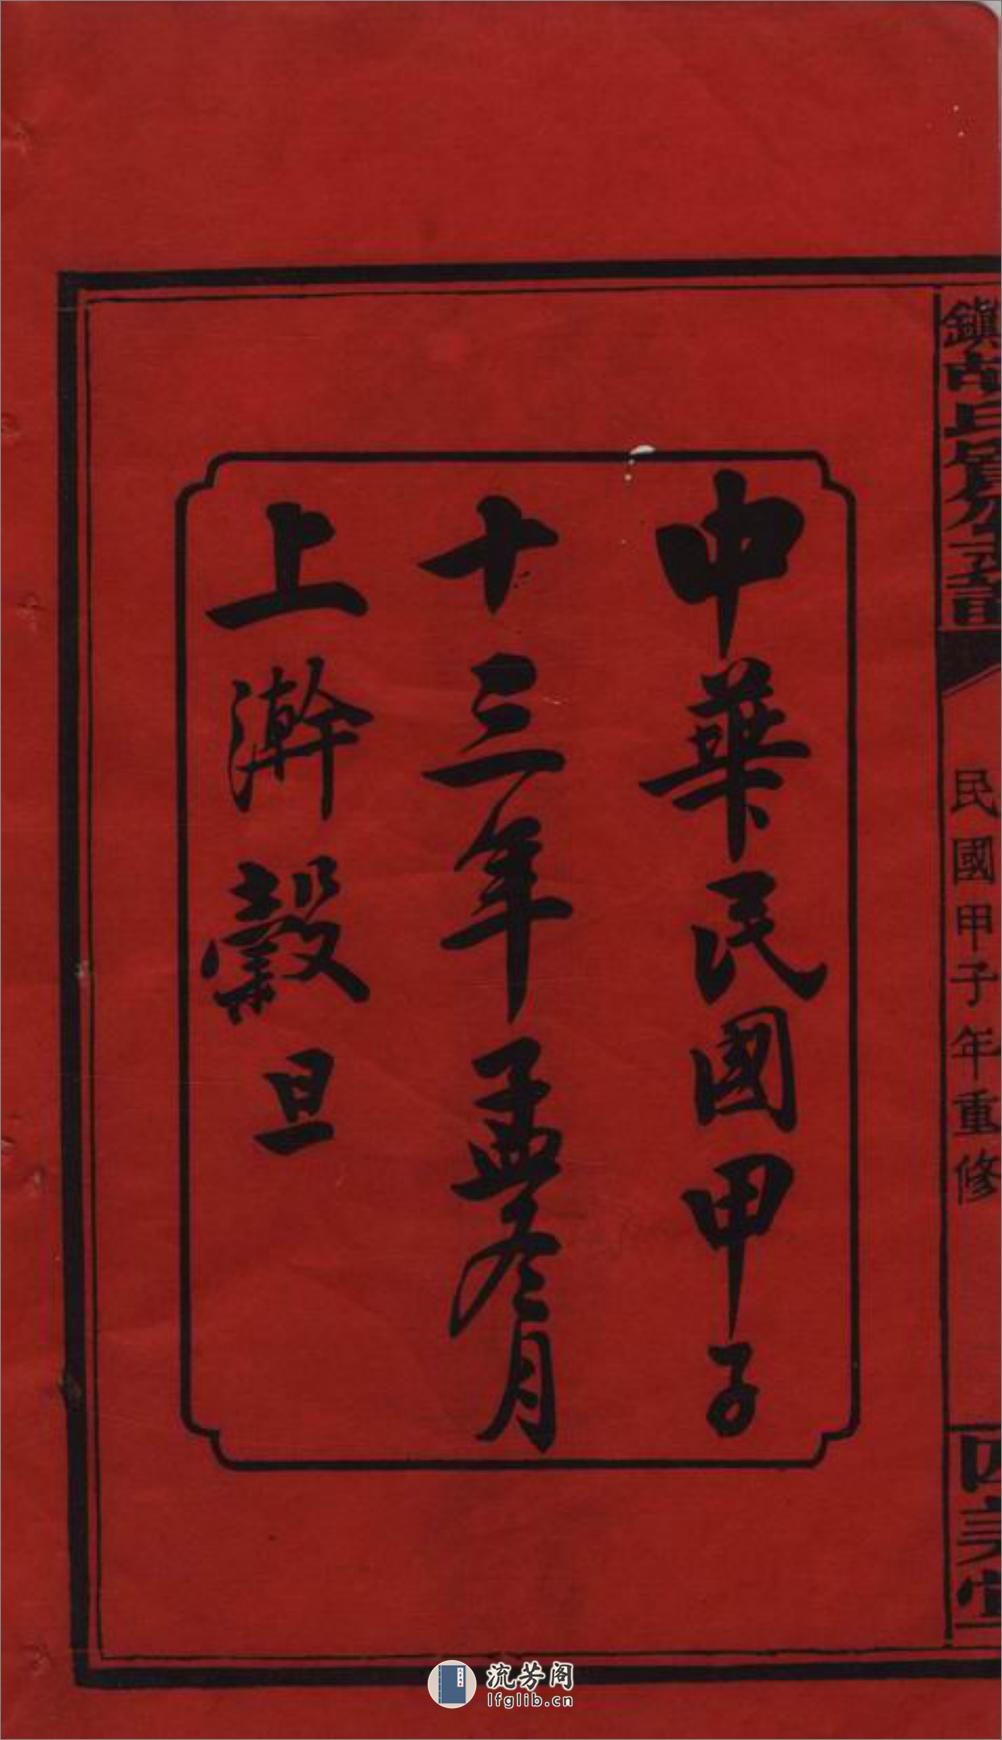 民國甲子年重修
四美堂
中華民國甲子
十三年孟冬月
上澣穀旦
流芳阁
lfglib.cn